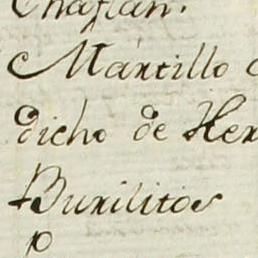 Chaflan.
Martillo
dicho de Her
Burilitos